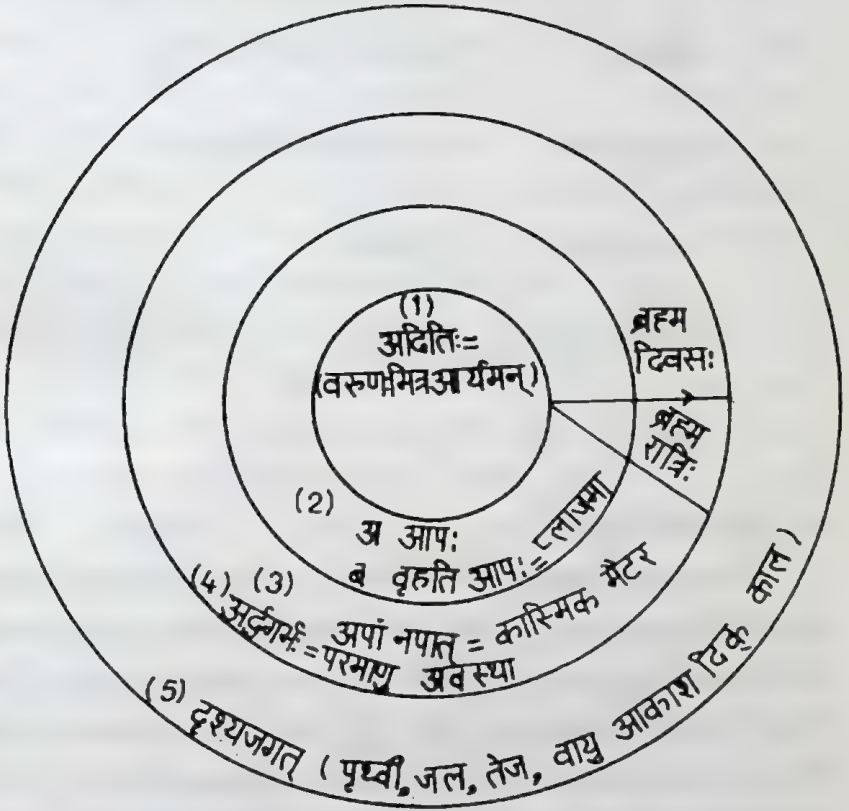 (1)
अदितिः=
(वरुणःमित्रआर्यमन्)
ब्रह्म
दिवसः
ब्रह्म
रात्रिः
(2)
अ आपः
ब वृहति आपः= प्लाजमा
(3)
अपां नपात् = कास्मिक मैटर
(4) अर्द्धगर्भः=परमाणु अवस्था
(5) दृश्यजगत् (पृथ्वी,जल, तेज, वायु आकाश दिक् काल)